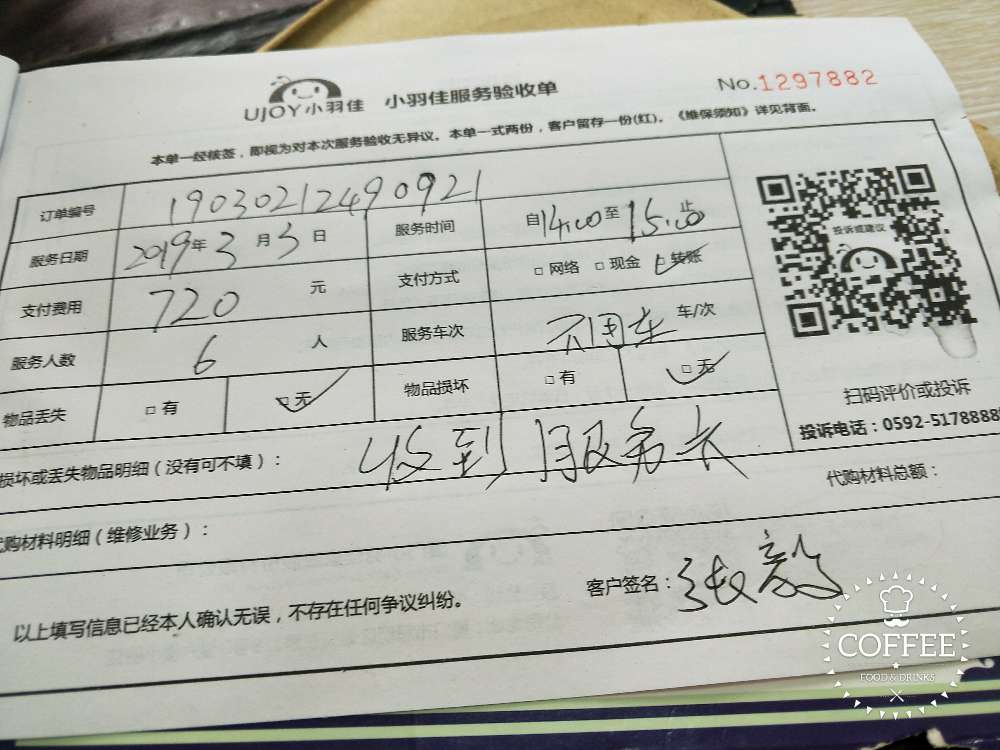 UJOY小羽佳 小羽佳服务验收单 No.1297882
本单一经核签，即视为对本次服务验收无异议。本单一式两份，客户留存一份(红)。《维保须知》详见背面。
订单编号 1903021249 0921
服务日期 2019年3月3日 服务时间 自14:00至15:00止
支付费用 720元 支付方式 □网络 □现金 □转账
服务人数 6人 服务车次 不用车 车/次
物品丢失 □有 □无 物品损坏 □有 □无
投诉或建议
扫码评价或投诉
投诉电话：0592-5178888
损坏或丢失物品明细（没有可不填）： 收到服务卡
代购材料明细（维修业务）： 代购材料总额：
以上填写信息已经本人确认无误，不存在任何争议纠纷。 客户签名：张毅
COFFEE
FOOD & DRINKS